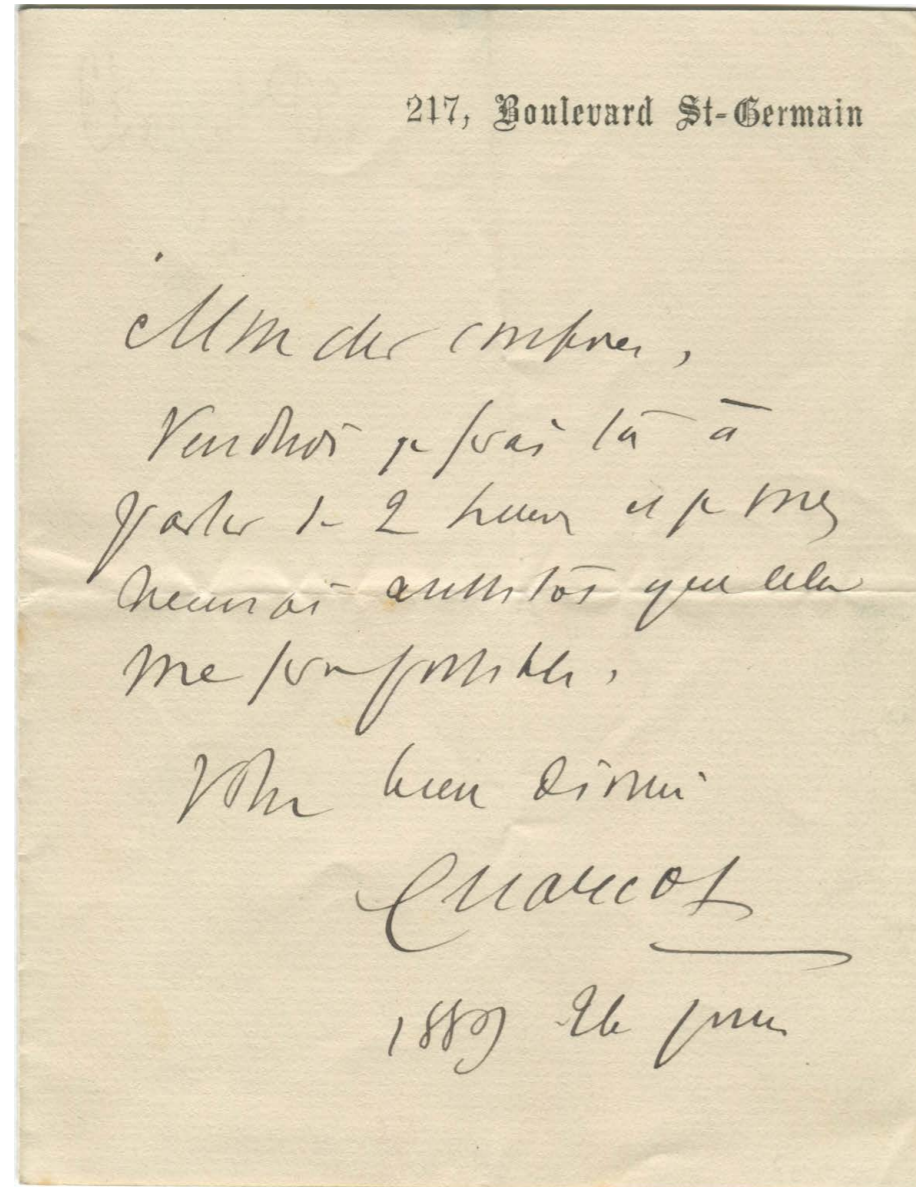 217, Boulevard St-Germain
Mon cher confrere,
Vendredi je serai là à
partir de 2 heures et je vous
recevrai aussitôt que cela
me sera possible.
Votre bien dévoué
Charcot
1889 26 juin